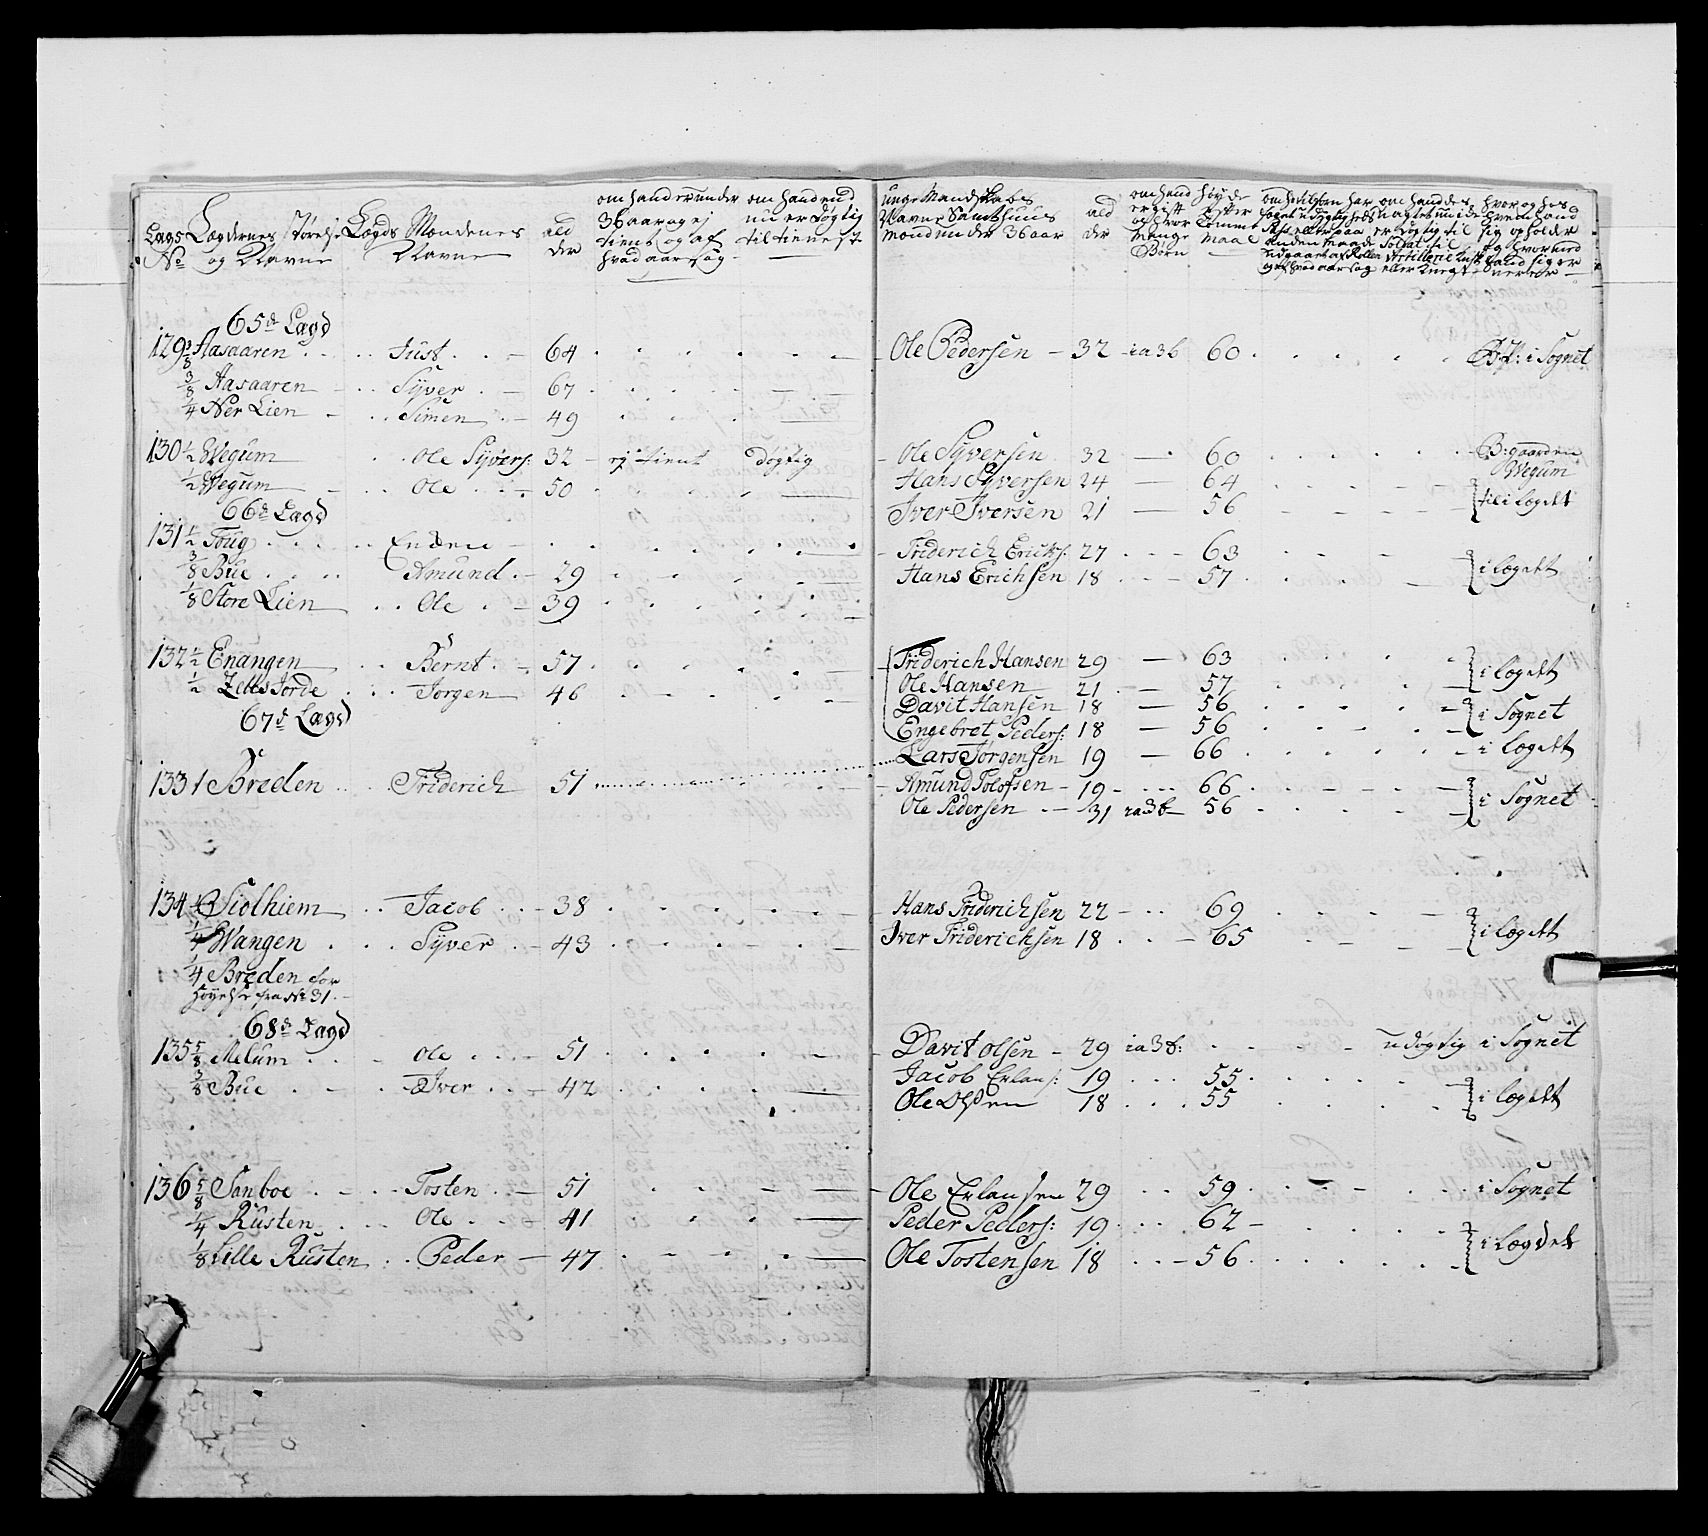 Lægs No
Lægdernes Størelse og Navne
Lægds Mændenes Navne
alder
om hand er under 36 aar og ej tient og af hvad aarsag
om hand end nu er døgtig til tieneste
unge Mandskabs Navne Samt huus mænd under 36 aar
alder
om hend er gift og hvor mange Børn
høyde efter Maal
65de Lægd
129 3/8 Aasaaren Just 64 Ole Pedersen 32 ia 3 b 60 i Sognet
3/8 Aasaaren Syver 67
1/4 Ner Lien Simen 49
130 1/2 Wegum Ole Syvers: 32 ej tient døgtig Ole Syversen 32 60 B: gaarden
1/2 Wegum Ole 50 Hans Syversen 24 64 Wegum
66de Lægd Iver Iversen 21 56 til i Lægdt
131 1/2 Toug Enken Friderich Erichs: 27 63
3/8 Bue Amund 29 Hans Erichsen 18 57 i Lægdt
1/8 Store Lien Ole 39
132 1/2 Enangen Bernt 57 Friderich Hansen 29 63
1/2 Zelts Jorde Jørgen 46 Ole Hansen 21 57 i Lægdt
67de Lægd Davit Hansen 18 56
Engebret Peders: 18 56 i Sognet
Lars Jørgensen 19 66 i Lægdt
133 1 Breden Friderich 51 Amund Tolofsen 19 66
Ole Pedersen 31 ia 3 b 56 i Sognet
134 1/2 Siolhiem Jacob 38 Hans Friderichsen 22 69
1/4 Wangen Syver 43 Iver Friderichsen 18 65 i Lægdt
1/4 Breden for
høyelse fra No 31
68de Lægd
135 5/8 Melum Ole 51 Davit Olsen 29 ia 3 b: udøgtig i Sognet
3/8 Bue Iver 42 Jacob Erlans: 19 55
Ole Olsen 18 55 i Lægdt
136 5/8 Sanboe Tosten 51 Ole Erlansen 29 59 i Sognet
1/4 Rusten Ole 41 Peder Peders: 19 62
1/8 Lille Rusten Peder 47 Ole Tostensen 18 56 i Lægdet